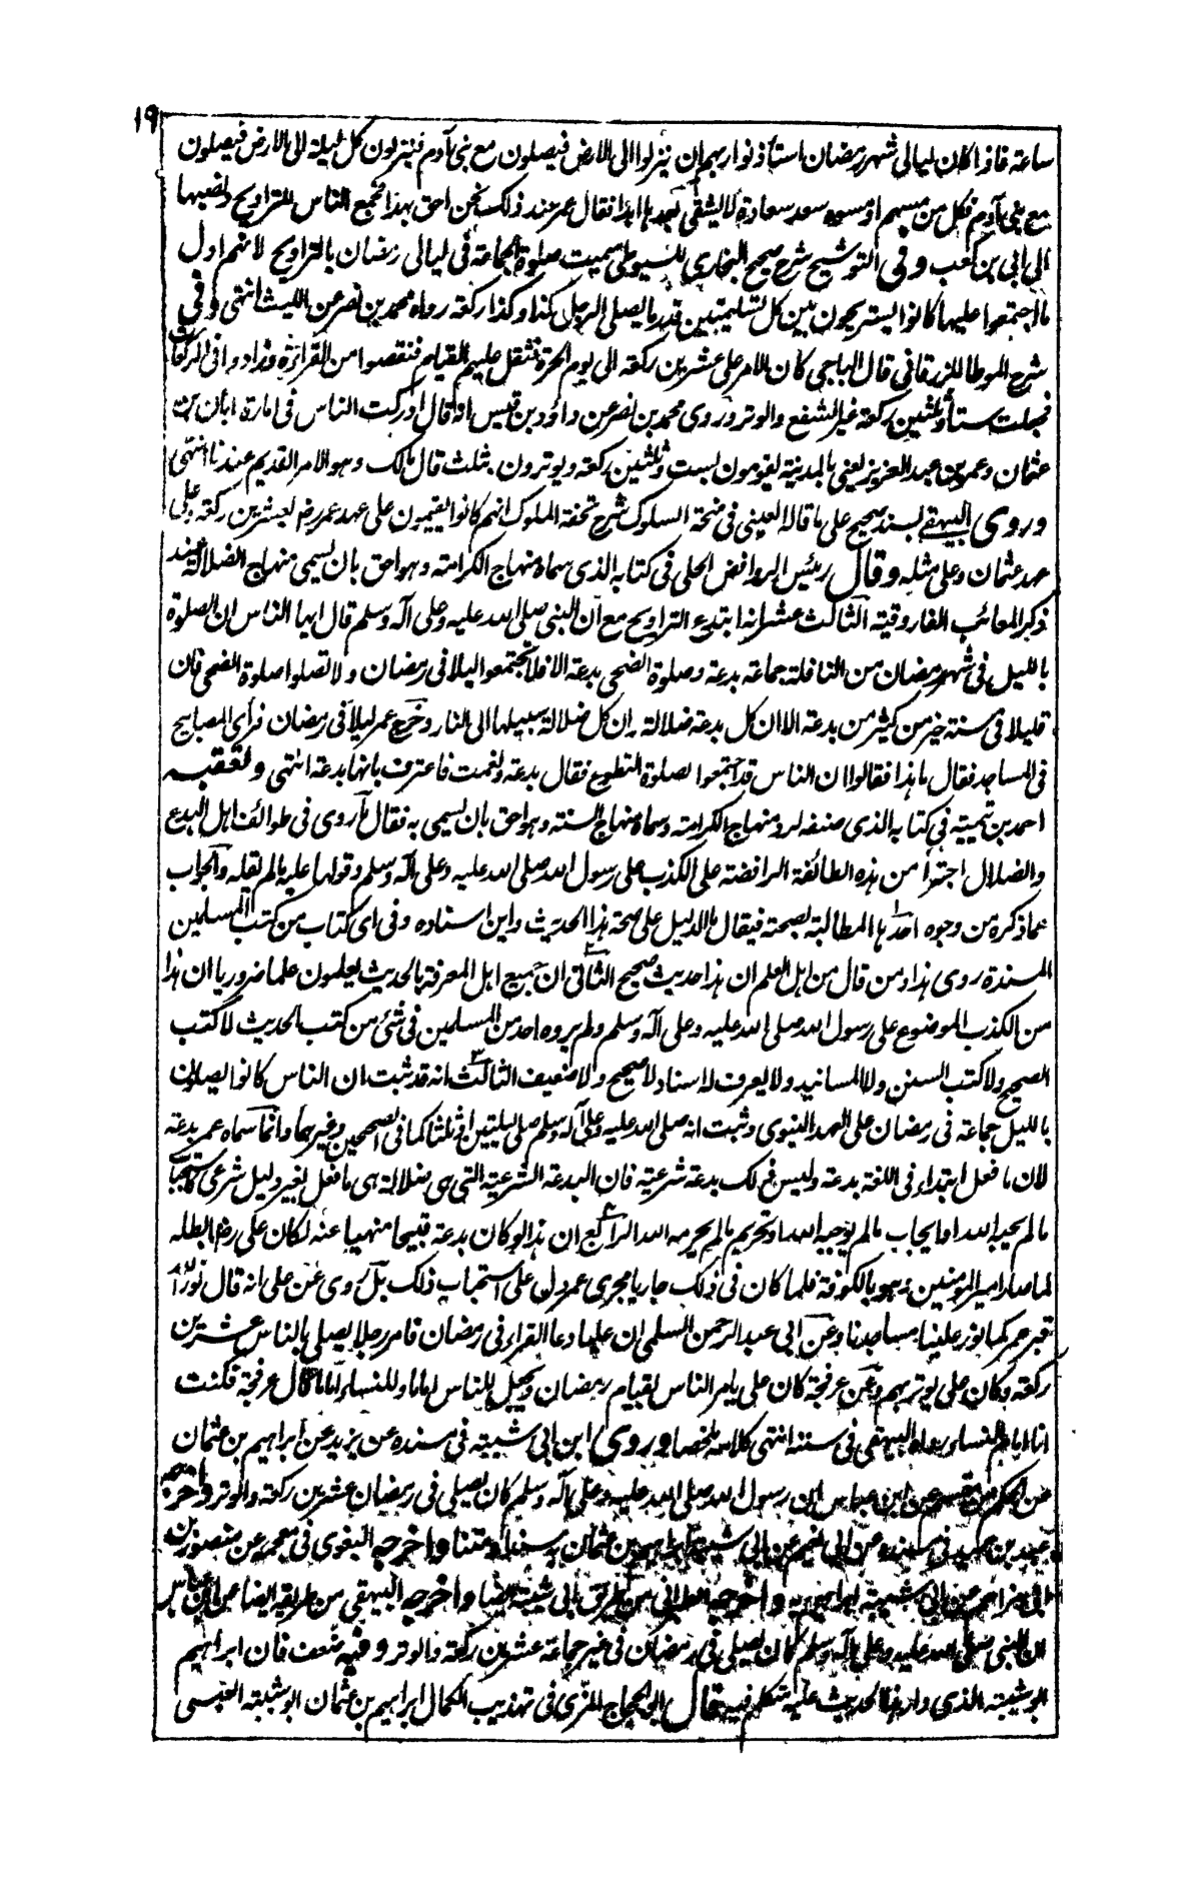 ١٩
ساعة فاذا كان ليالى شهر رمضان استأذنوا ربهم ان ينزلوا الى الارض فيصلون مع بنى آدم فينزلون كل ليلة الى الارض فيصلون
مع بنى آدم فكل من مسهم او مسوه سعد سعادة لا يشقى بعدها ابدا فقال عمر عند ذلك نحن احق بهذا فجمع الناس للتراويح ونصبها
الى ابى بن كعب وفى التوشيح شرح صحيح البخارى للسيوطى سميت صلوة الجماعة فى ليالى رمضان بالتراويح لانهم اول
ما اجتمعوا عليها كانوا يستريحون بين كل تسليمتين قدر ما يصلى الرجل كذا وكذا ركعة رواه محمد بن نصر عن الليث انتهى وفى
شرح الموطا للزرقانى قال الباجى كان الامر على عشرين ركعة الى يوم الحرة فثقل عليهم القيام فنقصوا من القراءة وزادوا فى الركعات
فجعلت ستا وثلثين ركعة غير الشفع والوتر وروى محمد بن نصر عن داؤد بن قيس انه قال ادركت الناس فى امارة ابان بن
عثمان وعمر بن عبد العزيز يعنى بالمدينة يقومون بست وثلثين ركعة ويوترون بثلث قال مالك وهو الامر القديم عندنا انتهى
وروى البيهقى بسند صحيح على ما قاله العينى فى منحة السلوك شرح تحفة الملوك انهم كانوا يقيمون على عهد عمر رض بعشرين ركعة وعلى
عهد عثمان وعلى مثله وقال رئيس الروافض الحلى فى كتابه الذى سماه منهاج الكرامة وهو احق بان يسمى منهاج الضلالة عند
ذكر المعائب الفاروقية الثالث عشر انه ابتدع التراويح مع ان النبى صلى الله عليه وعلى آله وسلم قال ايها الناس ان الصلوة
بالليل فى شهر رمضان من النافلة جماعة بدعة وصلوة الضحى بدعة الا فلا تجتمعوا ليلا فى رمضان ولا تصلوا صلوة الضحى فان
قليلا فى سنة خير من كثير من بدعة الا ان كل بدعة ضلالة وان كل ضلالة سبيلها الى النار وخرج عمر ليلا فى رمضان فرأى المصابيح
فى المساجد فقال ما هذا فقالوا ان الناس قد اجتمعوا لصلوة التطوع فقال بدعة ونعمت فاعترف بانها بدعة انتهى وتعقبه
احمد بن تيمية فى كتابه الذى صنفه لرد منهاج الكرامة وسماه منهاج السنة وهو احق بان يسمى به فقال ما روى فى طوائف اهل البدع
والضلال اجترأ من هذه الطائفة الرافضة على الكذب على رسول الله صلى الله عليه وعلى آله وسلم وقولها عليه ما لم يقله والجواب
عما ذكره من وجوه احدها المطالبة بصحته فيقال ما الدليل على صحة هذا الحديث واين اسناده وفى اى كتاب من كتب المسلمين
المسندة روى هذا ومن قال من اهل العلم ان هذا حديث صحيح الثانى ان جميع اهل المعرفة بالحديث يعلمون علما ضروريا ان هذا
من الكذب الموضوع على رسول الله صلى الله عليه وعلى آله وسلم ولم يروه احد من المسلمين فى شئ من كتب الحديث لا كتب
الصحيح ولا كتب السنن ولا المسانيد ولا يعرف له اسناد لا صحيح ولا ضعيف الثالث انه قد ثبت ان الناس كانوا يصلون
بالليل جماعة فى رمضان على العهد النبوى وثبت انه صلى الله عليه وعلى آله وسلم صلى ليلتين او ثلثا كما فى الصحيحين وغيرهما وانما سماه عمر بدعة
لان ما فعل ابتداء فى اللغة بدعة وليس ذلك بدعة شرعية فان البدعة الشرعية التى هى ضلالة هى ما فعل بغير دليل شرعى كاستحباب
ما لم يحبه الله او ايجاب ما لم يوجبه الله او تحريم ما لم يحرمه الله الرابع ان هذا لو كان بدعة قبيحا منهيا عنه لكان على رض ابطله
لما صار امير المؤمنين وهو بالكوفة فلما كان فى ذلك جاريا مجرى عمر دل على استحباب ذلك بل روى عن على انه قال نور الله
قبر عمر كما نور علينا مساجدنا وعن ابى عبد الرحمن السلمى ان عليا دعا القراء فى رمضان فامر رجلا يصلى بالناس عشرين
ركعة وكان على يوتر بهم وعن عرفجة كان على يامر الناس بقيام رمضان ويجعل للناس اماما وللنساء اماما قال عرفجة فكنت
انا امام النساء رواه البيهقى فى سننه انتهى كلامه ملخصا وروى ابن ابى شيبة فى مسنده عن يزيد عن ابراهيم بن عثمان
عن الحكم عن مقسم عن ابن عباس ان رسول الله صلى الله عليه وعلى آله وسلم كان يصلى فى رمضان عشرين ركعة والوتر واخرجه
عبد بن حميد فى مسنده عن ابى نعيم عن ابى شيبة ابراهيم بن عثمان به سندا ومتنا واخرجه البغوى فى معجمه عن منصور بن
ابى مزاحم عن ابى شيبة ابراهيم به واخرجه الطبرانى من طريق ابى شيبة ايضا واخرجه البيهقى من طريقه ايضا عن ابن عباس
ان النبى صلى الله عليه وعلى آله وسلم كان يصلى فى رمضان فى غير جماعة عشرين ركعة والوتر وفيه ضعف فان ابراهيم
ابو شيبة الذى دار هذا الحديث عليه متكلم فيه قال ابو الحجاج المزى فى تهذيب الكمال ابراهيم بن عثمان ابو شيبة العبسى